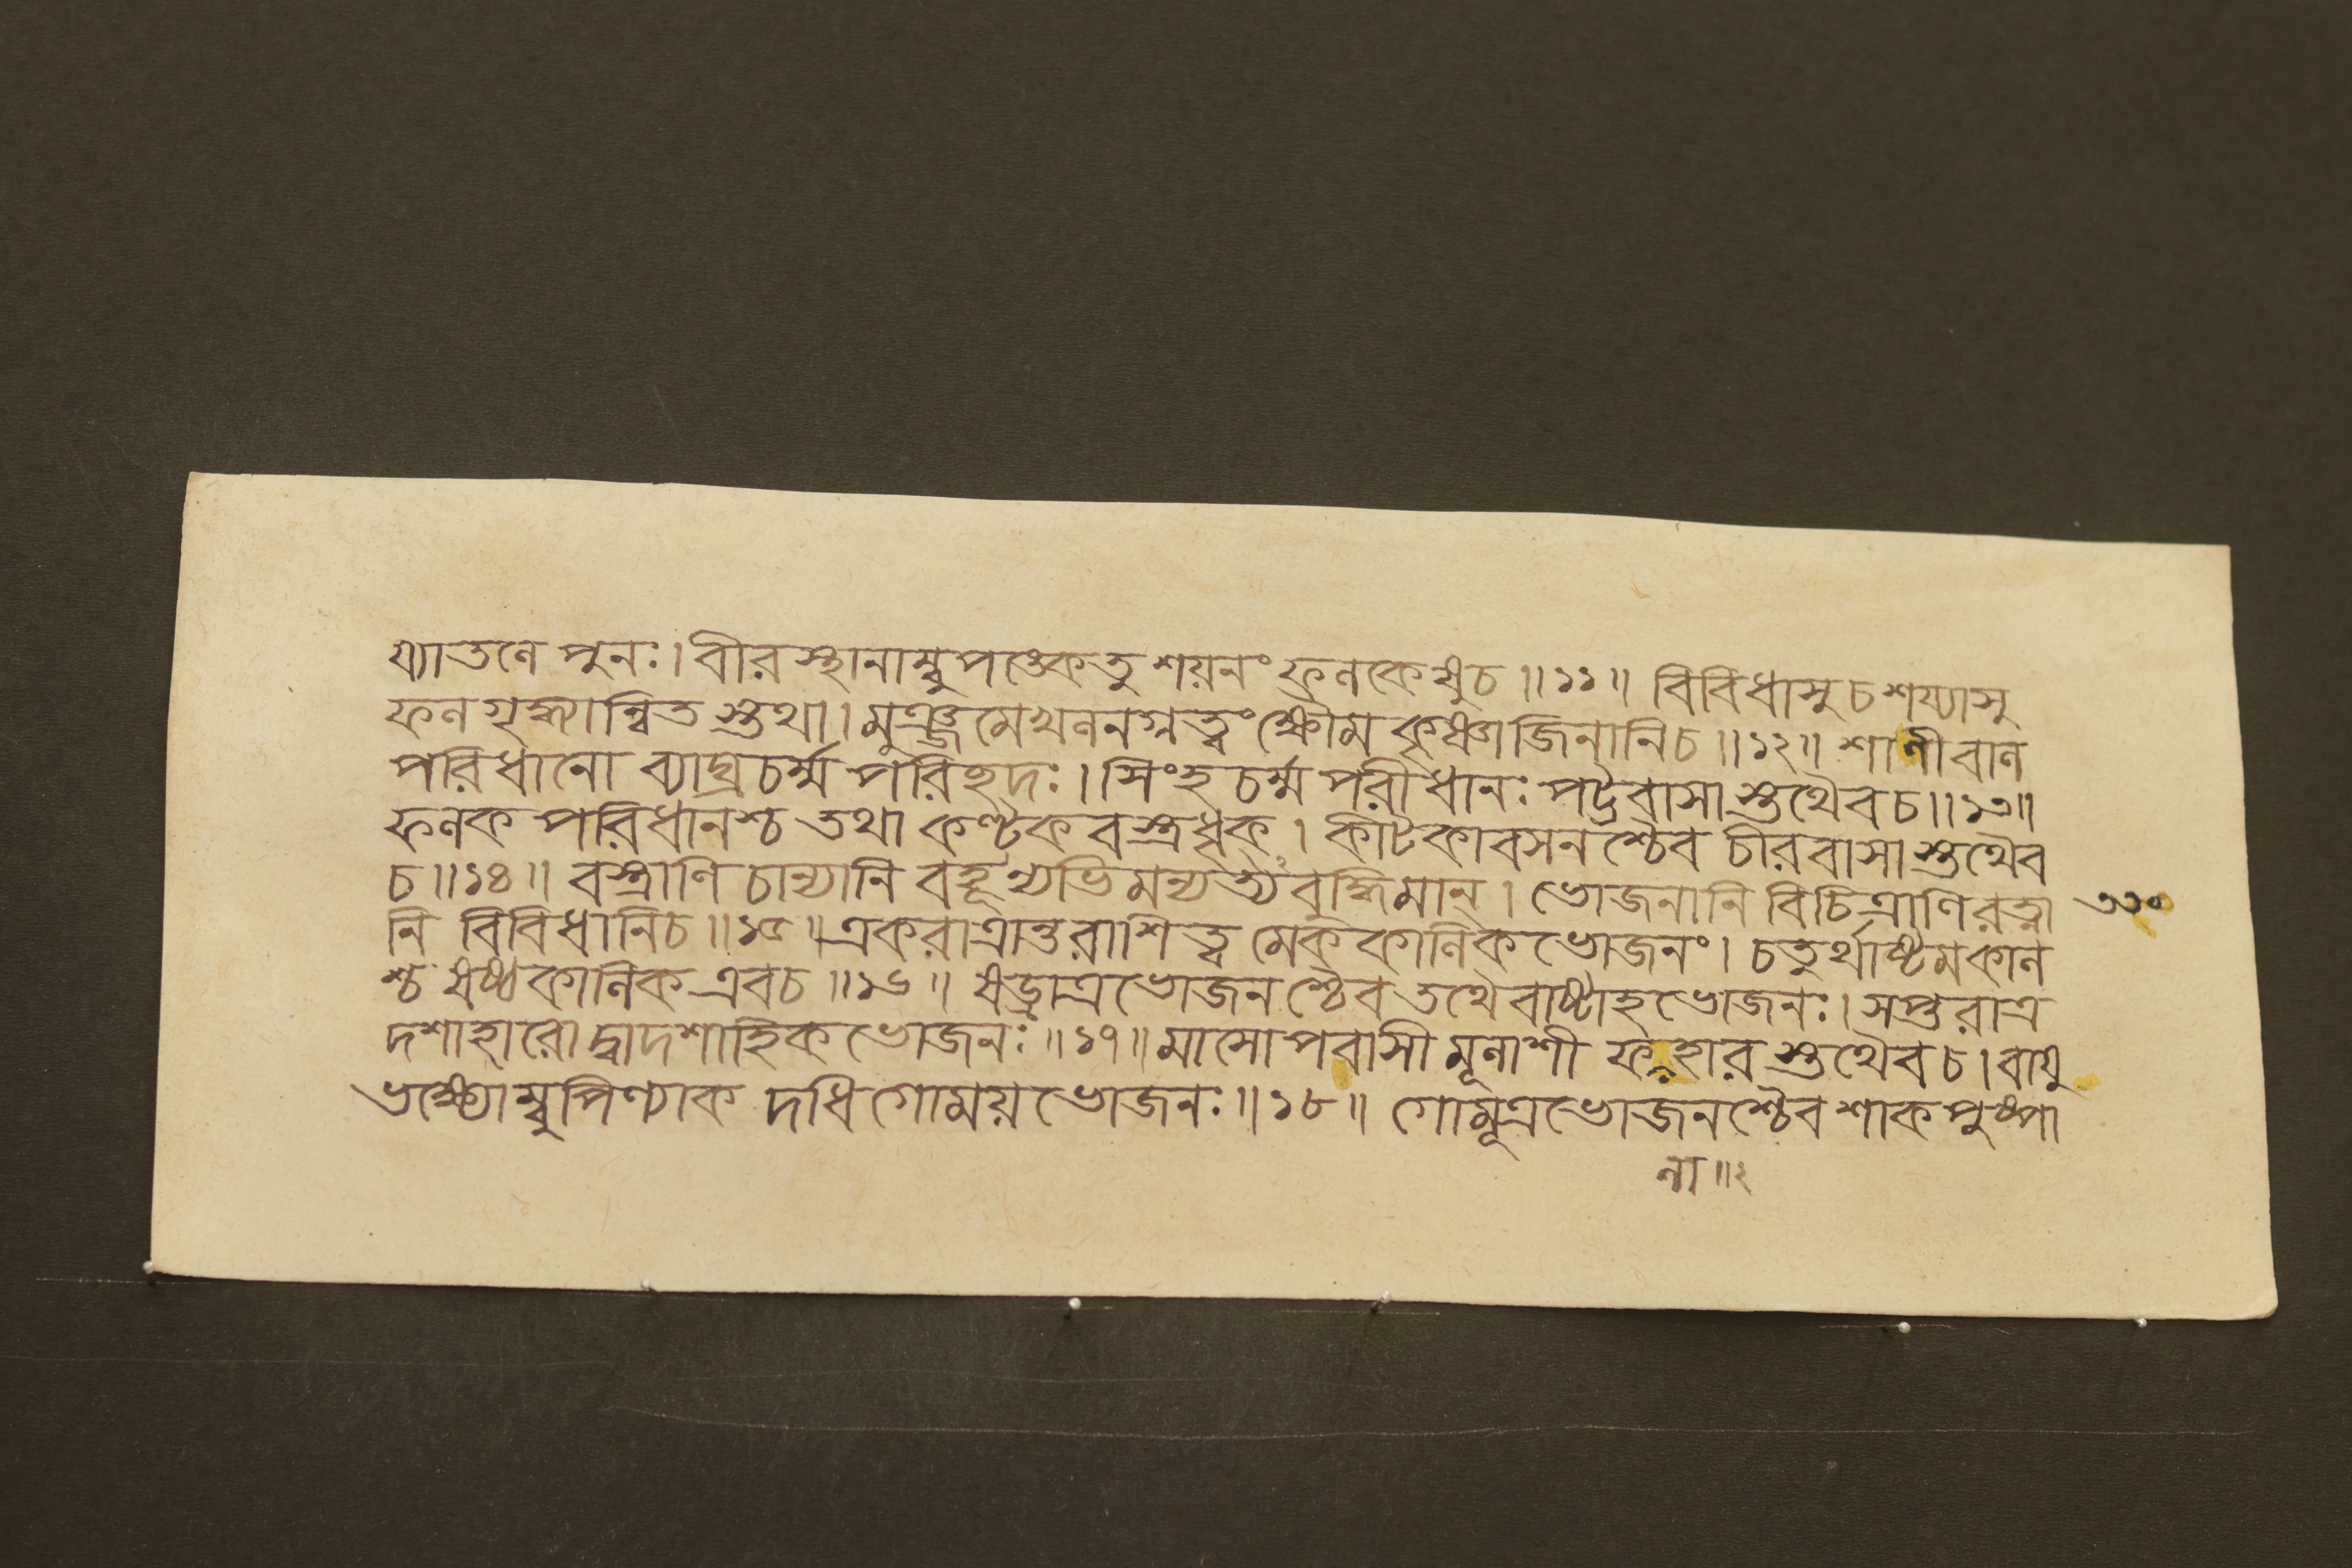 য্যাতলে পুনঃ। বীরস্থানাম্বুপঙ্কেতু শয়নং ফলকেষুচ ॥ ১১ ॥ বিবিধাসুচশয্যাসু
ফলগৃহ্ম্যান্বিত স্তথা। মুঞ্জমেখলনগ্নত্বংক্ষৌম কৃষ্ণাজিনানিচ ॥ ১২ ॥ শাণীবাল
পরিধানো ব্যাঘ্রচর্ম্ম পরিছদঃ। সিংহ চর্ম্ম পরীধানঃ পট্টবাসা স্তথৈবচ ॥ ১৩ ॥
ফলক পরিধানশ্চ তথা কণ্টক বস্ত্রধৃক্। কীটকাবসন শ্চৈব চীরবাসা স্তথৈব
চ ॥ ১৪ ॥ বস্ত্রাণি চান্যানি বহূন্যভিমন্যর্ত্যবুদ্ধিমান্। ভোজনানি বিচিত্রাণিরত্না ৩৩০
নি বিবিধানিচ ॥ ১৫ ॥ একরাত্রান্তরাশিত্ব মেককালিকভোজনং। চতুর্থাষ্টমকাল
শ্চ ষষ্ঠকালিক এবচ ॥ ১৬ ॥ ষড্রাত্রভোজনশ্চৈব তথৈবাষ্টাহভোজনঃ। সপ্তরাত্র
দশাহারো দ্বাদশাহ্নিক ভোজনঃ ॥ ১৭ ॥ মাসোপবাসী মূলাশী ফলাহার স্তথৈবচ। বায়ু
ভক্ষ্যোম্বুপিণ্যাক দধি গোময় ভোজনঃ ॥ ১৮ ॥ গোমূত্রভোজনশ্চৈব শাকপুষ্পা
লা ॥ ২